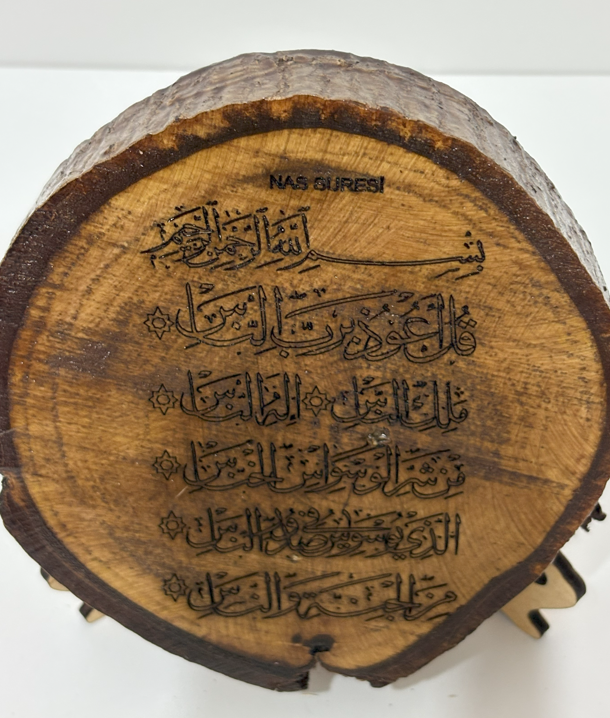 NAS SURESİ
بِسْمِ اللَّهِ الرَّحْمَٰنِ الرَّحِيمِ
قُلْ أَعُوذُ بِرَبِّ النَّاسِ
مَلِكِ النَّاسِ اِلَٰهِ النَّاسِ
مِنْ شَرِّ الْوَسْوَاسِ الْخَنَّاسِ
الَّذِي يُوَسْوِسُ فِي صُدُورِ النَّاسِ
مِنَ الْجِنَّةِ وَالنَّاسِ